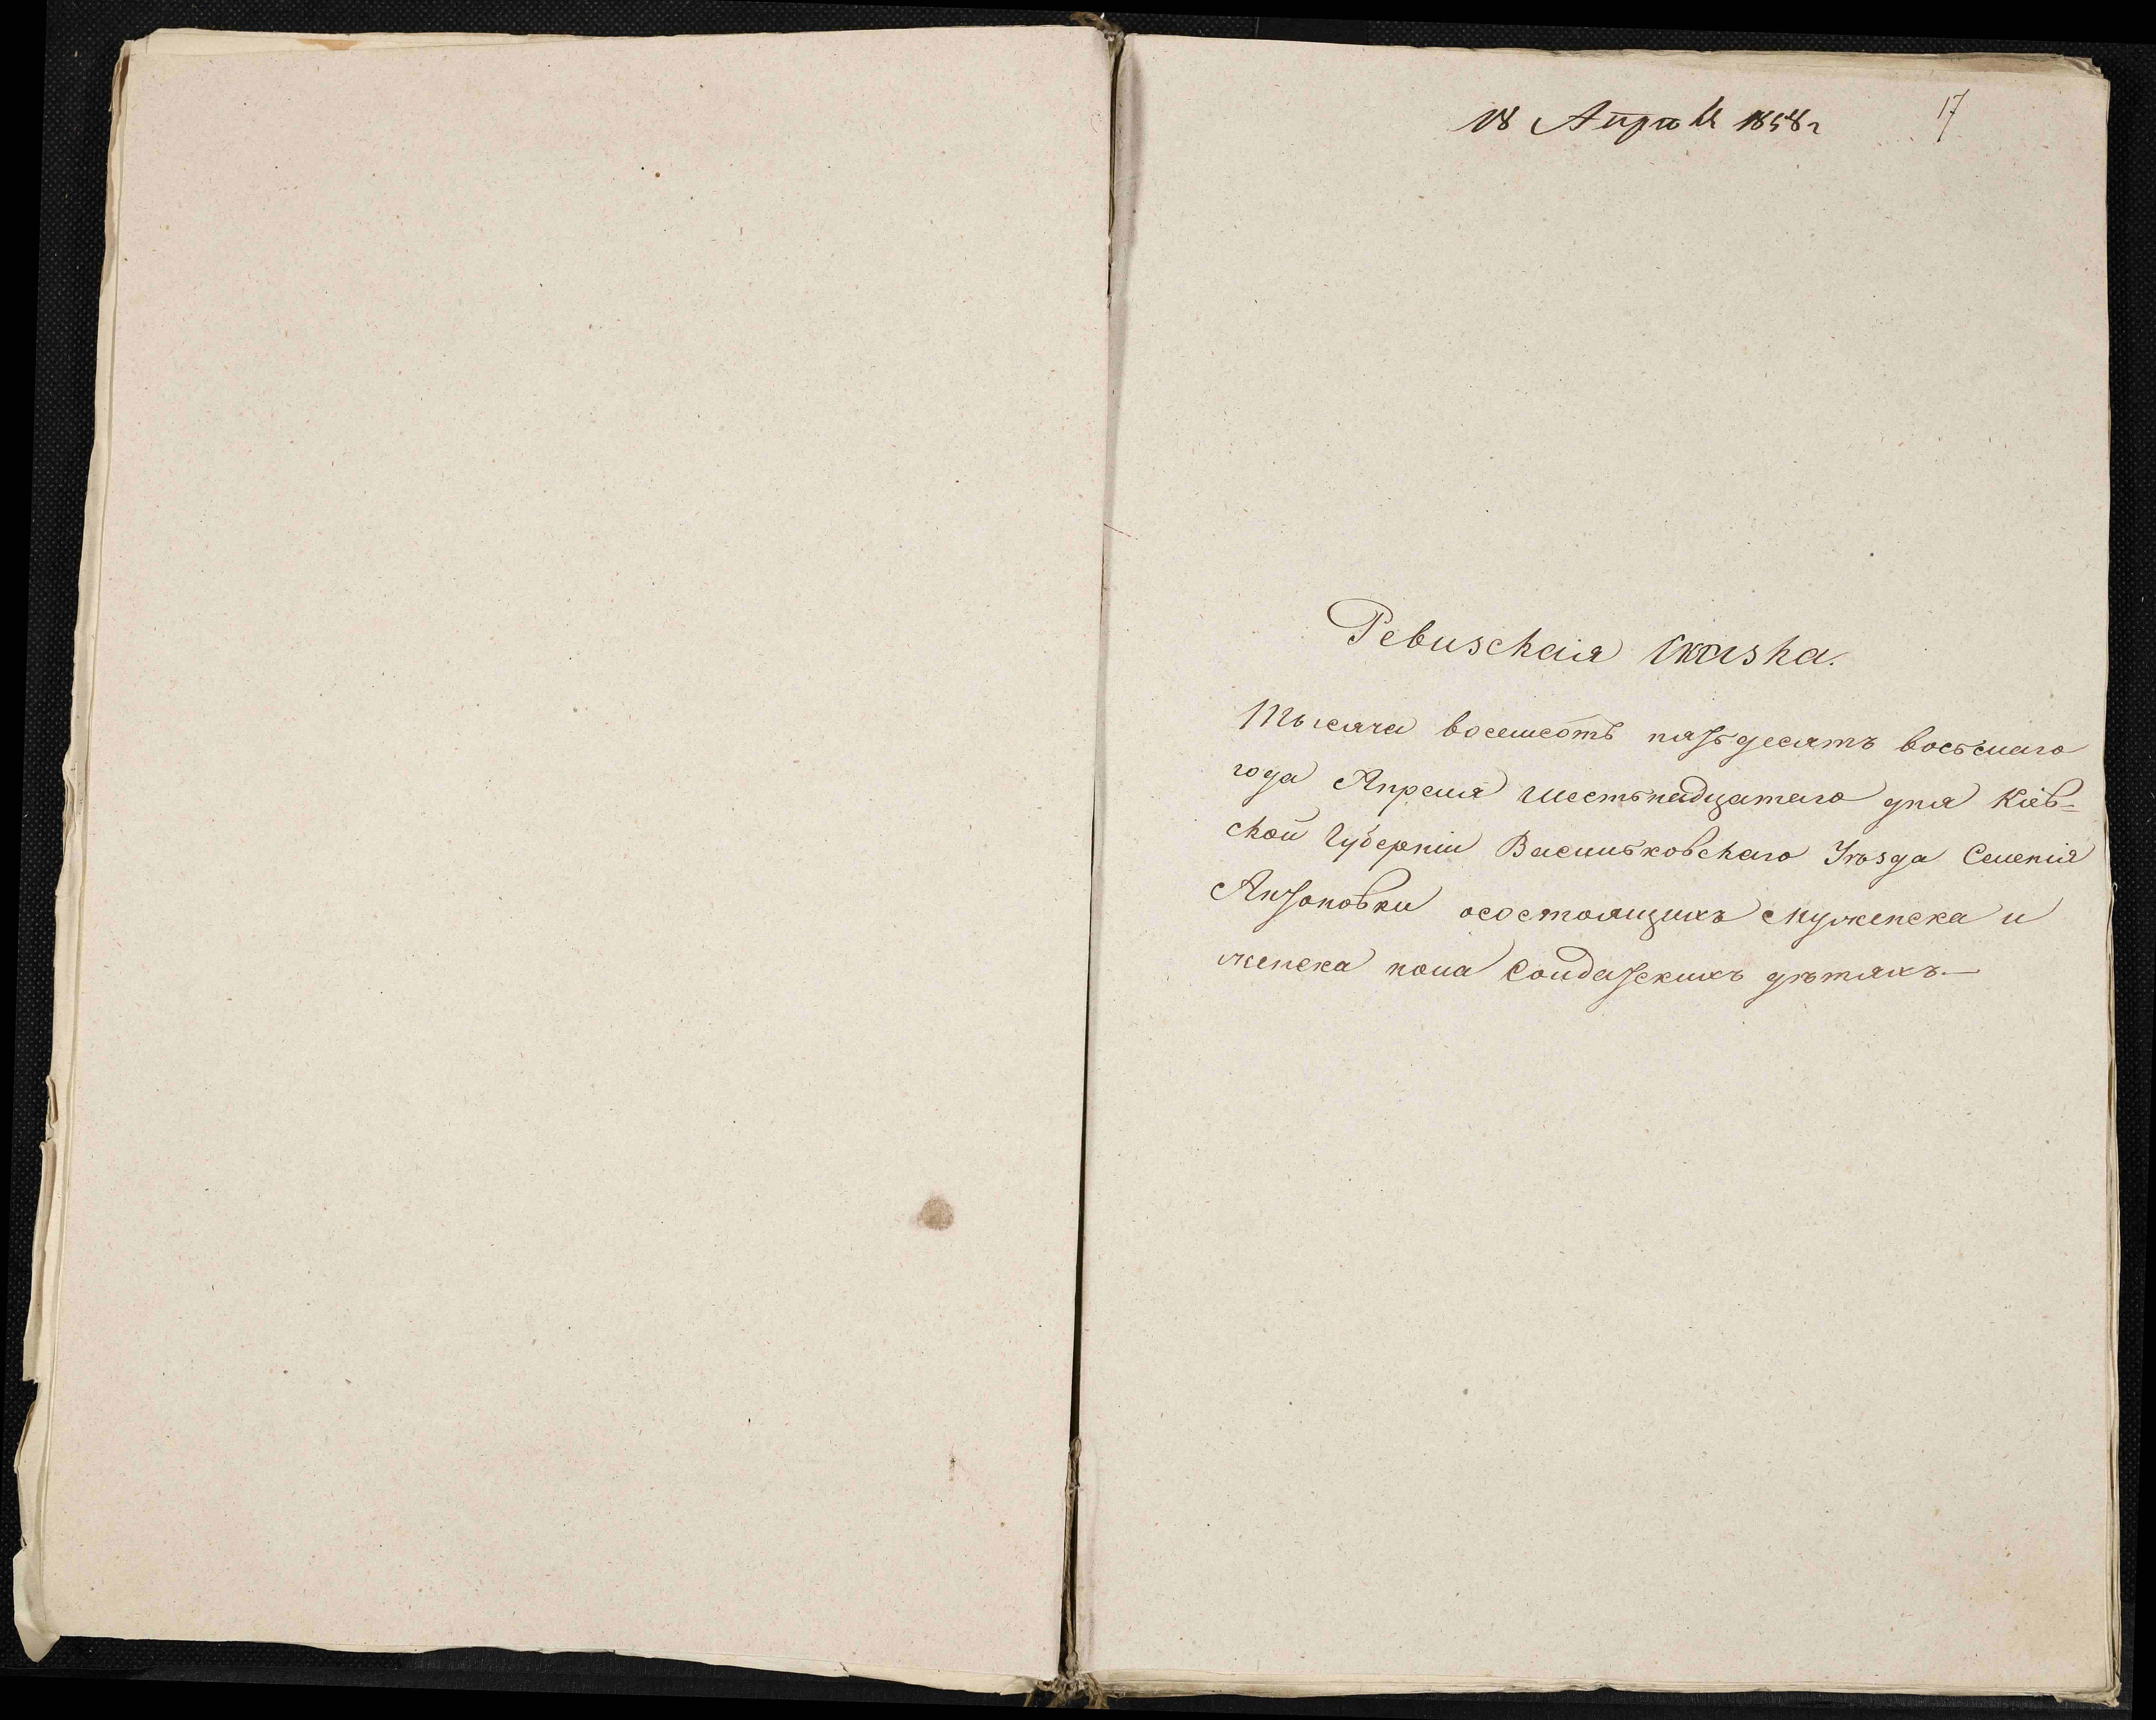 18 Апрѣля 1858 г
17
Ревизская Сказка.
Тысяча восемсотъ пятьдесятъ восьмаго
года Апреля шестьнадцатаго дня Кіев=
ской Губерніи Васильковскаго Уѣзда Селенія
Антоновки осостоящихъ мужеска и
женска пола Солдатскихъ дѣтяхъ.—